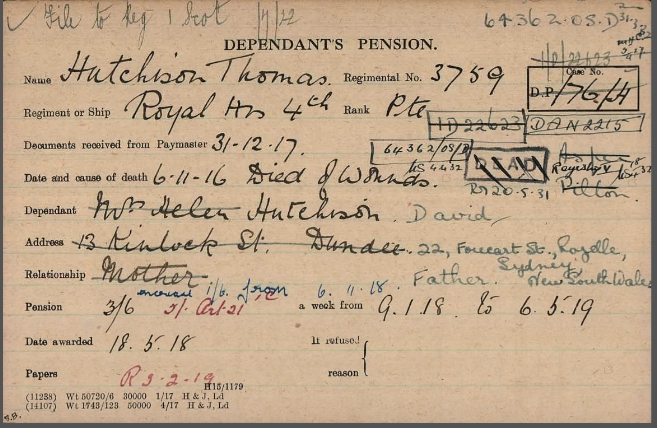 ✓ File to Reg 1 Scot 1/7/22
64362.OS.D 31.3.
DEPENDANT'S PENSION.
Name Hutchison Thomas. Regimental No. 3759
Case No.
D.P. 1767/H
Regiment or Ship Royal Hrs 4th Rank Pte
1D22623 DAN2215
Documents received from Paymaster 31-12-17.
64362/OS/D
Date and cause of death 6-11-16 Died of Wounds.
DEAD
R1 20.5.31 Pilton.
Dependant Mrs Helen Hutchison. David
Address 13 Kinlock St. Dundee. 22, Foucart St., Rozelle,
Sydney,
New South Wales
Relationship Mother Father.
increased 1/6. from 6.11.18.
Pension 3/6 5/- Art 21 a week from 9.1.18. to 6.5.19
Date awarded 18.5.18 If refused
reason
Papers R 3-2-19
H15/1179
(11258) Wt 50720/6 30000 1/17 H & J, Ld
(14107) Wt 1743/123 50000 4/17 H & J, Ld
S.B.